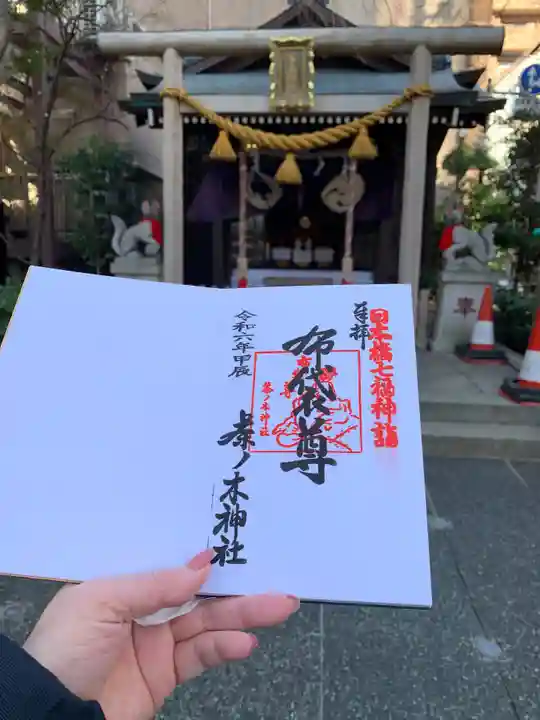 日本橋七福神詣
奉拝
布袋尊
茶ノ木神社
令和六年甲辰
茶ノ木神社